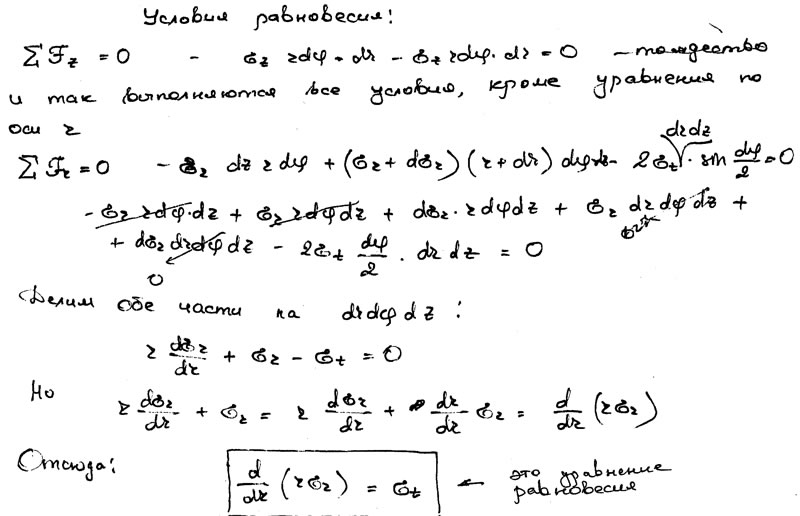 Условия равновесия:
∑F_z = 0 - σ_z r dφ · dr - σ_z r dφ · dr = 0 - тождество
и так выполняются все условия, кроме уравнения по
оси r
∑F_r = 0 - σ_r dz r dφ + (σ_r + dσ_r)(r + dr) dφ - 2σ_t dr dz · sin dφ/2 = 0
- σ_r r dφ · dz + σ_r r dφ dz + dσ_r · r dφ dz + σ_r dr dφ dz +
+ dσ_r dr dφ dz - 2σ_t dφ/2 · dr dz = 0
0
Делим обе части на dr dφ dz :
r dσ_r/dr + σ_r - σ_t = 0
Но r dσ_r/dr + σ_r = r dσ_r/dr + dr/dr σ_r = d/dr (r σ_r)
Отсюда: d/dr (r σ_r) = σ_t ← это уравнение
равновесия